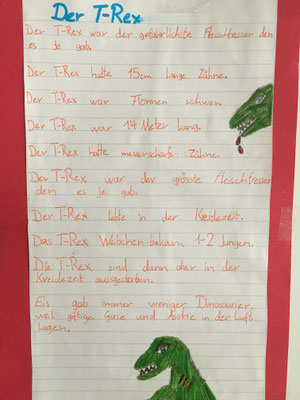 Der T-Rex
Der T-Rex war der gefährlichste Fleischfresser den
es je gab.
Der T-Rex hatte 15cm lange Zähne.
Der T-Rex war Tonnen schwer.
Der T-Rex war 14 Meter lang.
Der T-Rex hatte messerscharfe Zähne.
Der T-Rex war der grösste Fleischfresser
den es je gab.
Der T-Rex lebte in der Kreidezeit.
Das T-Rex Weibchen bekam 1-2 Jungen.
Die T-Rex sind dann aber in der
Kreidezeit ausgestorben.
Es gab immer weniger Dinosaurier,
weil giftige Gase und Asche in der Luft
lagen.